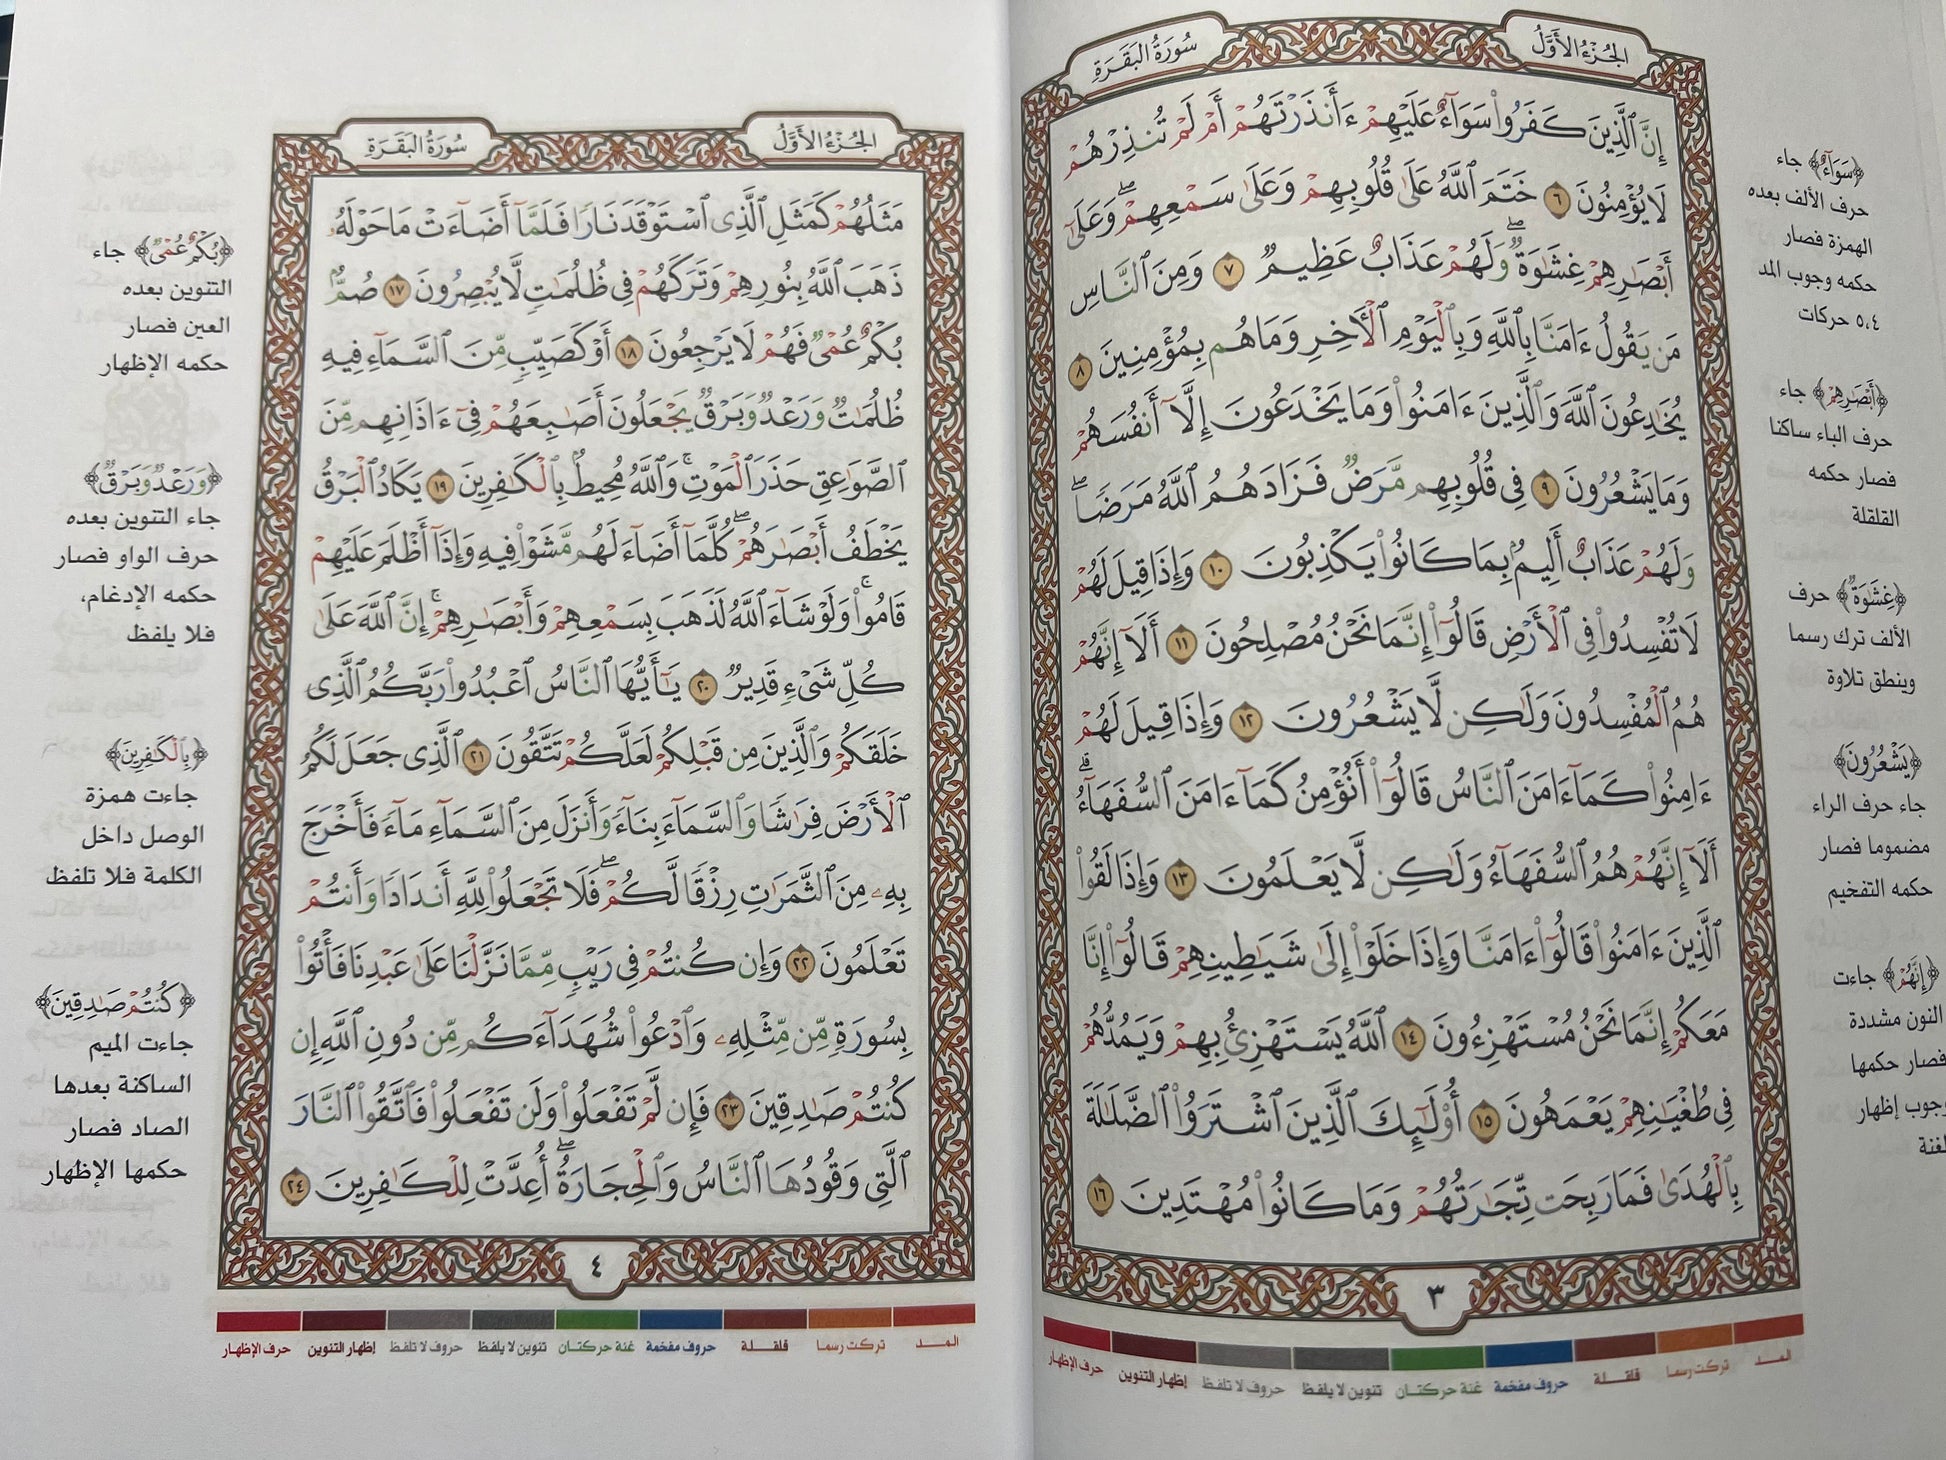 الجُزْءُ الأَوَّلُ
سُورَةُ البَقَرَةِ
إِنَّ ٱلَّذِينَ كَفَرُوا۟ سَوَآءٌ عَلَيْهِمْ ءَأَنذَرْتَهُمْ أَمْ لَمْ تُنذِرْهُمْ
لَا يُؤْمِنُونَ ٦ خَتَمَ ٱللَّهُ عَلَىٰ قُلُوبِهِمْ وَعَلَىٰ سَمْعِهِمْ ۖ وَعَلَىٰٓ
أَبْصَٰرِهِمْ غِشَٰوَةٌ ۖ وَلَهُمْ عَذَابٌ عَظِيمٌ ٧ وَمِنَ ٱلنَّاسِ
مَن يَقُولُ ءَامَنَّا بِٱللَّهِ وَبِٱلْيَوْمِ ٱلْأَخِرِ وَمَا هُم بِمُؤْمِنِينَ ٨
يُخَٰدِعُونَ ٱللَّهَ وَٱلَّذِينَ ءَامَنُوا۟ وَمَا يَخْدَعُونَ إِلَّآ أَنفُسَهُمْ
وَمَا يَشْعُرُونَ ٩ فِى قُلُوبِهِم مَّرَضٌ فَزَادَهُمُ ٱللَّهُ مَرَضًا ۖ
وَلَهُمْ عَذَابٌ أَلِيمٌۢ بِمَا كَانُوا۟ يَكْذِبُونَ ١٠ وَإِذَا قِيلَ لَهُمْ
لَا تُفْسِدُوا۟ فِى ٱلْأَرْضِ قَالُوٓا۟ إِنَّمَا نَحْنُ مُصْلِحُونَ ١١ أَلَآ إِنَّهُمْ
هُمُ ٱلْمُفْسِدُونَ وَلَٰكِن لَّا يَشْعُرُونَ ١٢ وَإِذَا قِيلَ لَهُمْ
ءَامِنُوا۟ كَمَآ ءَامَنَ ٱلنَّاسُ قَالُوٓا۟ أَنُؤْمِنُ كَمَآ ءَامَنَ ٱلسُّفَهَآءُ ۗ
أَلَآ إِنَّهُمْ هُمُ ٱلسُّفَهَآءُ وَلَٰكِن لَّا يَعْلَمُونَ ١٣ وَإِذَا لَقُوا۟
ٱلَّذِينَ ءَامَنُوا۟ قَالُوٓا۟ ءَامَنَّا وَإِذَا خَلَوْا۟ إِلَىٰ شَيَٰطِينِهِمْ قَالُوٓا۟ إِنَّا
مَعَكُمْ إِنَّمَا نَحْنُ مُسْتَهْزِءُونَ ١٤ ٱللَّهُ يَسْتَهْزِئُ بِهِمْ وَيَمُدُّهُمْ
فِى طُغْيَٰنِهِمْ يَعْمَهُونَ ١٥ أُو۟لَٰٓئِكَ ٱلَّذِينَ ٱشْتَرَوُا۟ ٱلضَّلَٰلَةَ
بِٱلْهُدَىٰ فَمَا رَبِحَت تِّجَٰرَتُهُمْ وَمَا كَانُوا۟ مُهْتَدِينَ ١٦
٣
﴿سَوَآءٌ﴾ جاء
حرف الألف بعده
الهمزة فصار
حكمه وجوب المد
٥،٤ حركات
﴿أَبْصَٰرِهِمْ﴾ جاء
حرف الباء ساكنا
فصار حكمه
القلقلة
﴿غِشَٰوَةٌ﴾ حرف
الألف ترك رسما
وينطق تلاوة
﴿يَشْعُرُونَ﴾
جاء حرف الراء
مضموما فصار
حكمه التفخيم
﴿إِنَّهُمْ﴾ جاءت
النون مشددة
فصار حكمها
وجوب إظهار
الغنة
المـد
تركت رسما
قلقـلـة
حروف مفخمة
غنة حركتـان
تنوين لا يلفظ
حروف لا تلفظ
إظهار التنوين
حرف الإظهار
الجُزْءُ الأَوَّلُ
سُورَةُ البَقَرَةِ
مَثَلُهُمْ كَمَثَلِ ٱلَّذِى ٱسْتَوْقَدَ نَارًا فَلَمَّآ أَضَآءَتْ مَا حَوْلَهُۥ
ذَهَبَ ٱللَّهُ بِنُورِهِمْ وَتَرَكَهُمْ فِى ظُلُمَٰتٍ لَّا يُبْصِرُونَ ١٧ صُمٌّۢ
بُكْمٌ عُمْىٌ فَهُمْ لَا يَرْجِعُونَ ١٨ أَوْ كَصَيِّبٍ مِّنَ ٱلسَّمَآءِ فِيهِ
ظُلُمَٰتٌ وَرَعْدٌ وَبَرْقٌ يَجْعَلُونَ أَصَٰبِعَهُمْ فِىٓ ءَاذَانِهِم مِّنَ
ٱلصَّوَٰعِقِ حَذَرَ ٱلْمَوْتِ ۚ وَٱللَّهُ مُحِيطٌۢ بِٱلْكَٰفِرِينَ ١٩ يَكَادُ ٱلْبَرْقُ
يَخْطَفُ أَبْصَٰرَهُمْ ۖ كُلَّمَآ أَضَآءَ لَهُم مَّشَوْا۟ فِيهِ وَإِذَآ أَظْلَمَ عَلَيْهِمْ
قَامُوا۟ ۚ وَلَوْ شَآءَ ٱللَّهُ لَذَهَبَ بِسَمْعِهِمْ وَأَبْصَٰرِهِمْ ۚ إِنَّ ٱللَّهَ عَلَىٰ
كُلِّ شَىْءٍ قَدِيرٌ ٢٠ يَٰٓأَيُّهَا ٱلنَّاسُ ٱعْبُدُوا۟ رَبَّكُمُ ٱلَّذِى
خَلَقَكُمْ وَٱلَّذِينَ مِن قَبْلِكُمْ لَعَلَّكُمْ تَتَّقُونَ ٢١ ٱلَّذِى جَعَلَ لَكُمُ
ٱلْأَرْضَ فِرَٰشًا وَٱلسَّمَآءَ بِنَآءً وَأَنزَلَ مِنَ ٱلسَّمَآءِ مَآءً فَأَخْرَجَ
بِهِۦ مِنَ ٱلثَّمَرَٰتِ رِزْقًا لَّكُمْ ۖ فَلَا تَجْعَلُوا۟ لِلَّهِ أَندَادًا وَأَنتُمْ
تَعْلَمُونَ ٢٢ وَإِن كُنتُمْ فِى رَيْبٍ مِّمَّا نَزَّلْنَا عَلَىٰ عَبْدِنَا فَأْتُوا۟
بِسُورَةٍ مِّن مِّثْلِهِۦ وَٱدْعُوا۟ شُهَدَآءَكُم مِّن دُونِ ٱللَّهِ إِن
كُنتُمْ صَٰدِقِينَ ٢٣ فَإِن لَّمْ تَفْعَلُوا۟ وَلَن تَفْعَلُوا۟ فَٱتَّقُوا۟ ٱلنَّارَ
ٱلَّتِى وَقُودُهَا ٱلنَّاسُ وَٱلْحِجَارَةُ ۖ أُعِدَّتْ لِلْكَٰفِرِينَ ٢٤
٤
﴿بُكْمٌ عُمْىٌ﴾ جاء
التنوين بعده
العين فصار
حكمه الإظهار
﴿وَرَعْدٌ وَبَرْقٌ﴾
جاء التنوين بعده
حرف الواو فصار
حكمه الإدغام،
فلا يلفظ
﴿بِٱلْكَٰفِرِينَ﴾
جاءت همزة
الوصل داخل
الكلمة فلا تلفظ
﴿كُنتُمْ صَٰدِقِينَ﴾
جاءت الميم
الساكنة بعدها
الصاد فصار
حكمها الإظهار
المـد
تركت رسما
قلقـلـة
حروف مفخمة
غنة حركتـان
تنوين لا يلفظ
حروف لا تلفظ
إظهار التنوين
حرف الإظهار